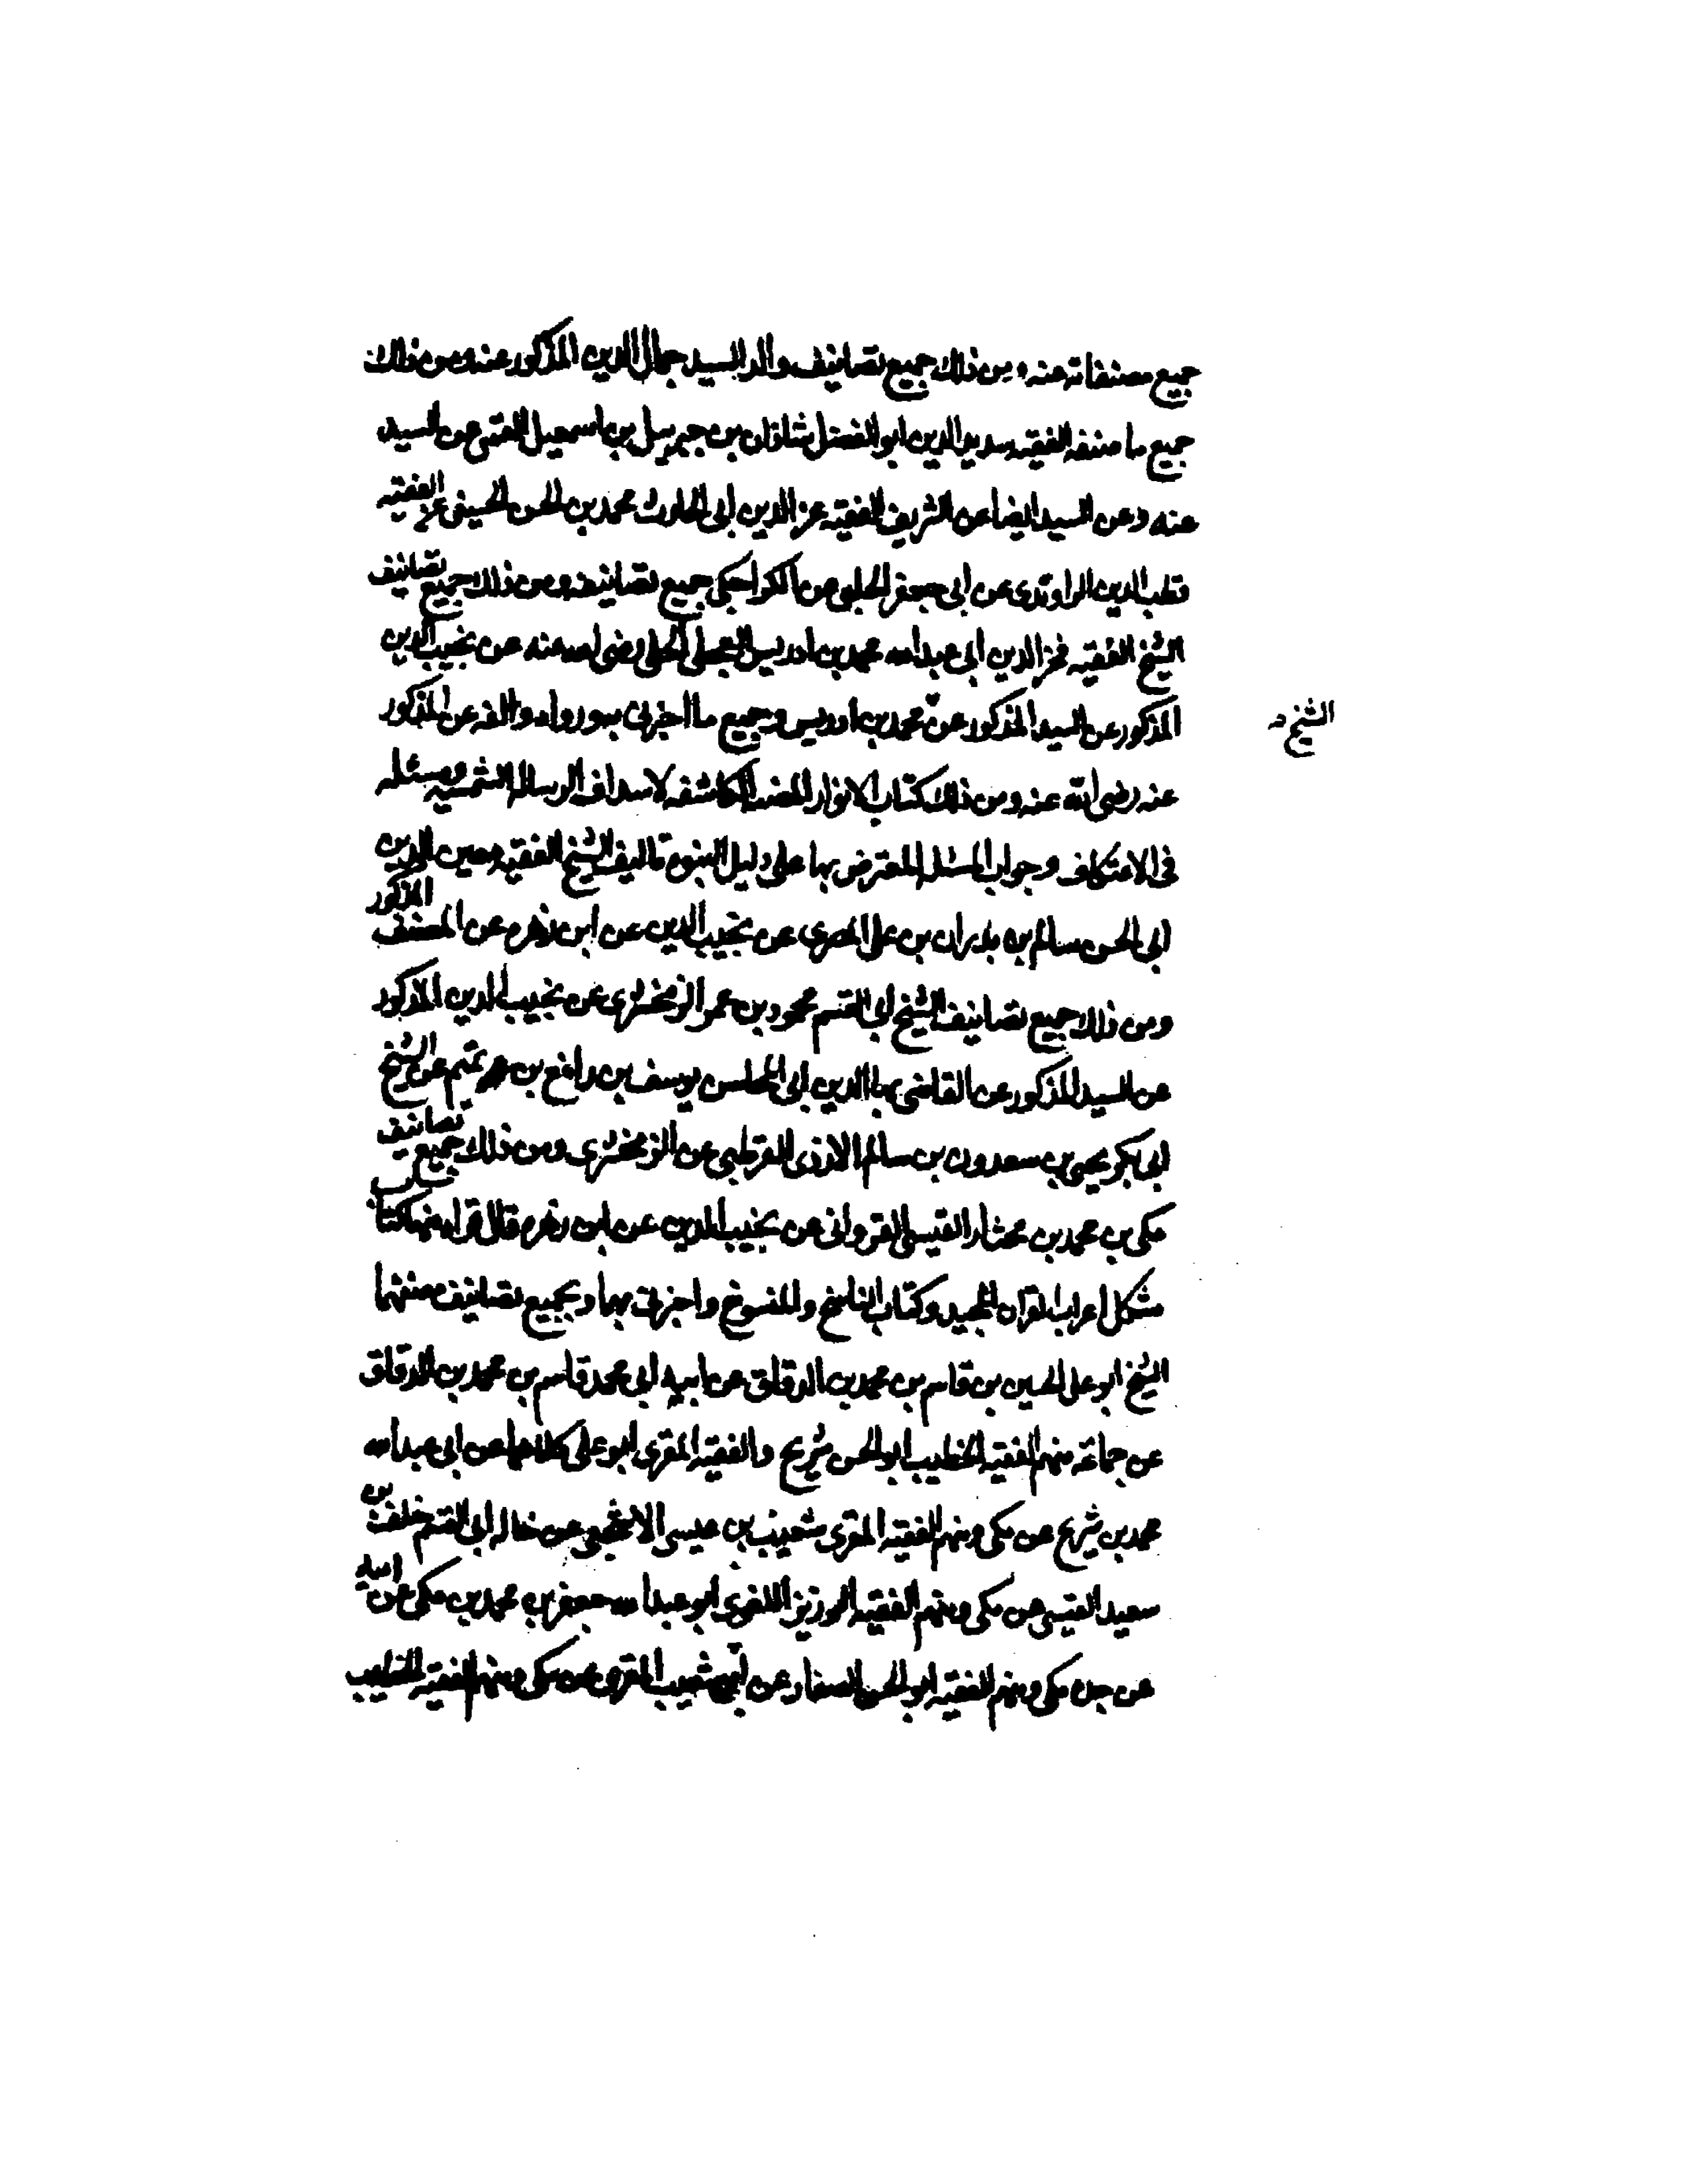 جميع مصنفاته عنه ومن ذلك جميع تصانيف والد السيد جمال الدين المذكور عنه ومن ذلك
جميع ما صنفه الفقيه سديد الدين ابو الفضل شاذان بن جبرييل بن اسمعيل القمى عن السيد
عنه وعن السيد ايضا عن الشريف الفقيه عز الدين ابى الحارث محمد بن الحسن الحسينى عن الفقيه
قطب الدين الراوندى عن ابى جعفر الحلبى عن الكراجكى جميع تصانيفه ومن ذلك جميع تصانيف
الشيخ الفقيه فخر الدين ابى عبد الله محمد بن ادريس العجلى الحلى رضى الله عنه عن نجيب الدين
المذكور عن السيد المذكور عن محمد بن ادريس وجميع ما اجزلى به ورواه والفه عن المذكور
الشيخ
عنه رضى الله عنه ومن ذلك كتاب الانوار المضيه الكاشفه لاسداف الرساله الشمسيه ومسئله
فى الاعتكاف وجواب المسئله المعترض بها على دليل النبوه تاليف الشيخ الفقيه معين الدين
ابى الحسن سالم بن بدران بن على المصرى عن نجيب الدين عن ابن زهره عن المصنف المذكور
ومن ذلك جميع تصانيف الشيخ ابى القسم محمود بن عمر الزمخشرى عن نجيب الدين المذكور
عن السيد المذكور عن القاضى بها الدين ابى المحاسن يوسف بن رافع بن تميم عن الشيخ
ابى بكر يحيى بن سعدون بن سالم الازدى القرطبى عن الزمخشرى ومن ذلك جميع تصانيف
مكى بن محمد بن مختار القيسى القروانى عن نجيب الدين عن ابن زهره قال قراه منها كتاب
مشكل اعراب القران المجيد وكتاب الناسخ والمنسوخ واجزلى بهما وبجميع تصانيف مصنفهما
الشيخ ابو على الحسين بن قاسم بن محمد بن الدقاق عن ابيه ابى محمد قاسم بن محمد بن الدقاق
عن جماعة منهم الفقيه الخطيب ابو الحسن شريح والفقيه المقرى ابو على كلاهما عن ابى عبد الله
محمد بن شريح عن مكى ومنهم الفقيه المقرى شعيب بن عيسى الاشجعى عن خاله ابى القسم خلف بن
سعيد القيسى عن مكى ومنهم الفقيه الوزير اللغوى ابو عبد الله جعفر بن محمد بن مكى عن ابيه
عن جده مكى ومنهم الفقيه ابو الحسن الصفار عن شعيب المقرى عن مكى ومنهم الفقيه الخطيب